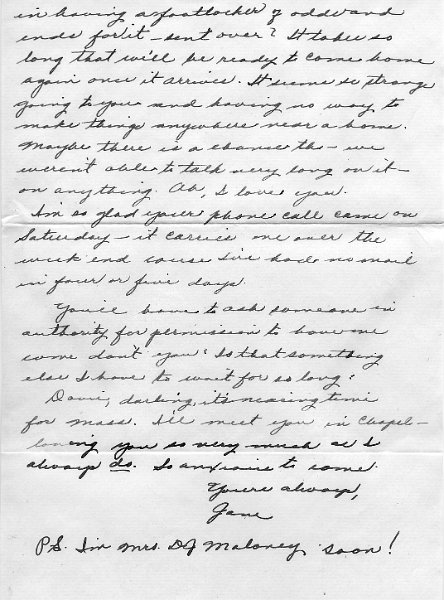 in having a footlocker of odds and
ends for it - sent over? It takes so
long that we'll be ready to come home
again once it arrives. It seems so strange
going to you and having no way to
make things anywhere near a home.
Maybe there is a chance tho - we
weren't able to talk very long on it -
on anything. Oh, I love you.
I'm so glad your phone call came on
Saturday - it carries me over the
week end cause I've had no mail
in four or five days
You'll have to ask someone in
authority for permission to have me
come don't you? Is that something
else I have to wait for so long?
darling, it's nearing time
for mass. I'll meet you in Chapel -
loving you so very much as I
always do. So anxious to come.
Yours always,
Jane
P.S. I'm Mrs. DJ Maloney soon!